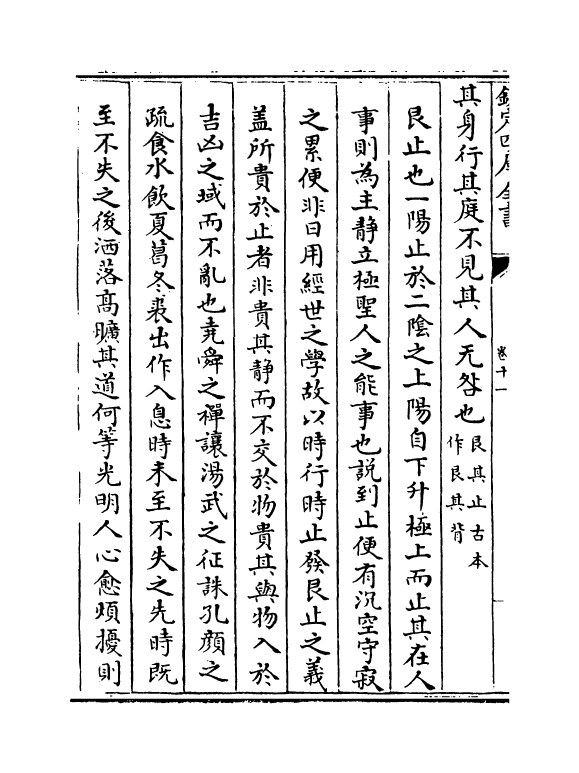 欽定四庫全書
卷十一
其身行其庭不見其人无咎也艮其止古本
作艮其背
艮止也一陽止於二陰之上陽自下升極上而止其在人
事則為主静立極聖人之能事也説到止便有沉空守寂
之累便非日用經世之學故以時行時止發艮止之義
蓋所貴於止者非貴其静而不交於物貴其與物入於
吉凶之域而不亂也堯舜之禪讓湯武之征誅孔顔之
疏食水飲夏葛冬裘出作入息時未至不失之先時既
至不失之後洒落高曠其道何等光明人心愈煩擾則